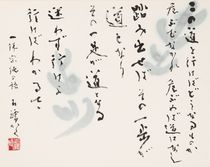 この道を行けばどうなるのかと
危ぶむなかれ 危ぶめば道はなし
踏み出せばその一歩が
道となり
その一歩が道である
迷わず行けよ
行けばわかる
一休宗純語